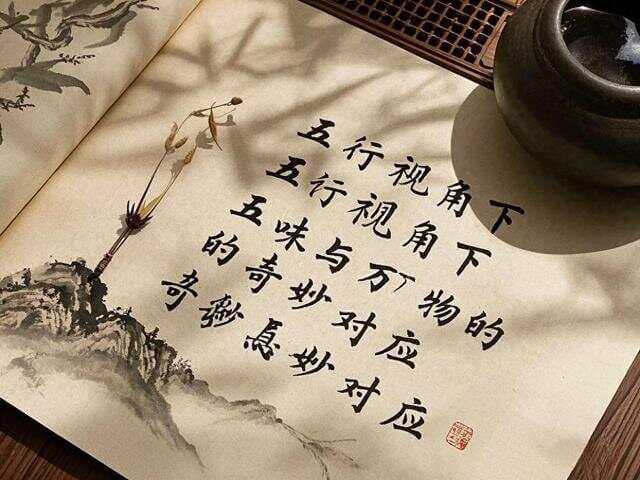 五行视角下
五行视角下
五味与万物的
的奇妙对应
奇妙对应